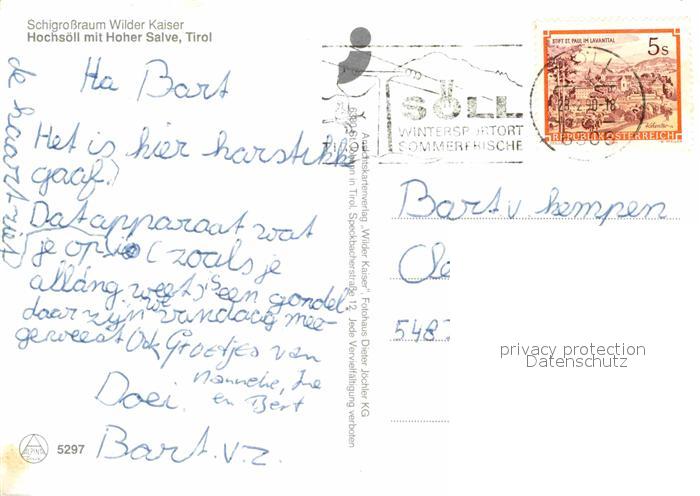 Schigroßraum Wilder Kaiser
Hochsöll mit Hoher Salve, Tirol
de kaart ziet
Ha Bart
Het is hier harstikke
gaaf!
Dat apparaat wat
je op ziet (zoals je
allang weet) is een gondel.
daar zijn we vandaag mee
geweest Ook Groetjes van
Hanneke, Ine
en Bert
Doei.
Bart.v.z.
5297
Ansichtskartenverlag „Wilder Kaiser“ Fotohaus Dieter Jöchler KG
in Tirol, Speckbacherstraße 12 Jede Vervielfältigung verboten
SÖLL
WINTERSPORTORT
SOMMERFRISCHE
STIFT ST. PAUL IM LAVANTTAL
5 S
REPUBLIK ÖSTERREICH
Bart v. kempen
548
privacy protection
Datenschutz